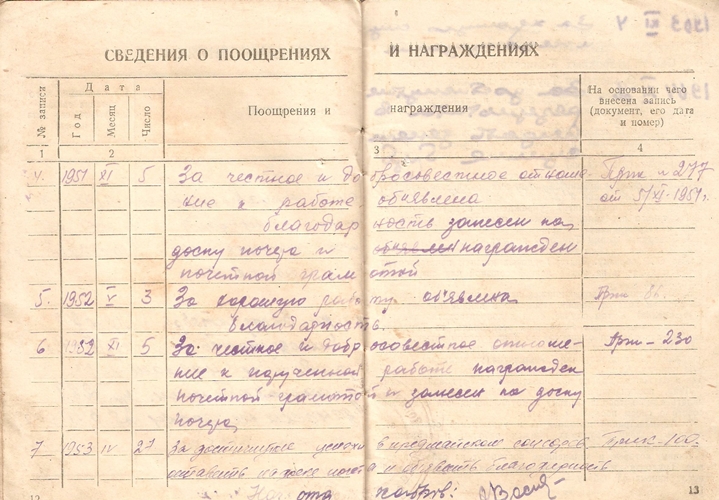 СВЕДЕНИЯ О ПООЩРЕНИЯХ И НАГРАЖДЕНИЯХ
№ записи
Дата
Год
Месяц
Число
Поощрения и награждения
На основании чего внесена запись (документ, его дата и номер)
1 2 3 4
4. 1951 XI 5 За честное и добросовестное отноше- Прик № 277
ние к работе объявлена от 5/XI-1951г.
благодарность занесен на
доску почета и награжден
почетной грамотой
5. 1952 V 3 За хорошую работу объявлена Прк 86
благодарность.
6 1952 XI 5 За честное и добросовестное отноше- Прк - 230
ние к порученной работе награжден
почетной грамотой и занесен на доску
почета
7 1953 IV За достигнутые успехи в предмайском соцсорев. Прик-100
оставить на доске почета и объявить благодарность
13